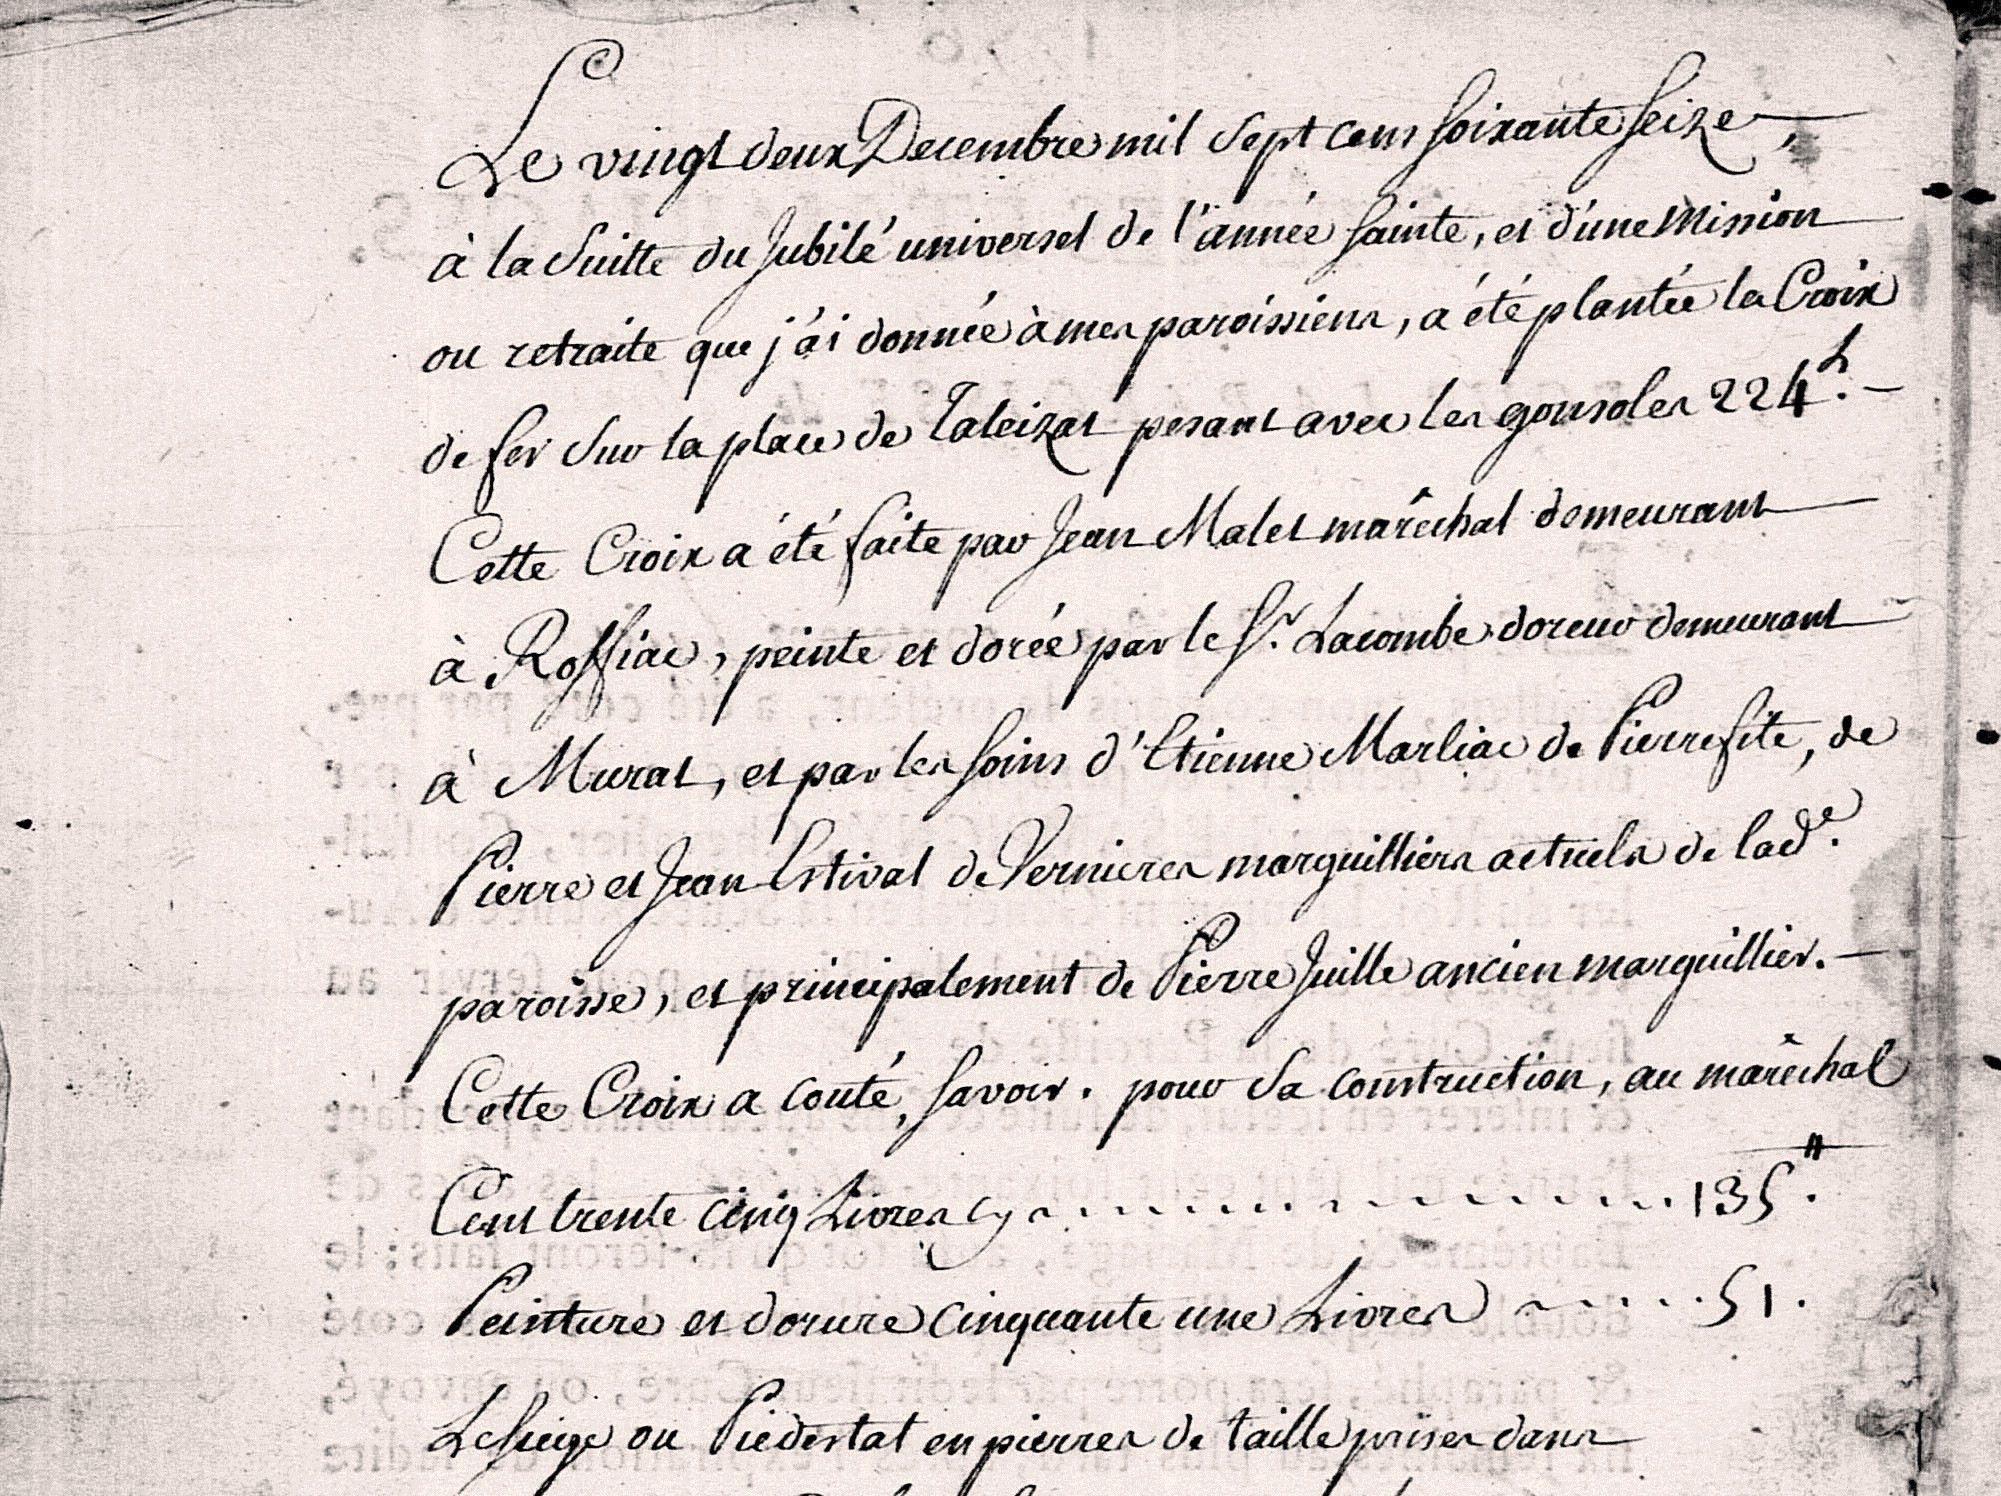 Le vingt deux Decembre mil sept cens soixante seize,
à la Suitte du Jubilé universel de l'année sainte, et d'une Mission
ou retraite que j'ai donnée à mes paroissiens, a été plantée la Croix
de fer sur la place de Taleizat pesant avec les gonsoles 224 L. —
Cette Croix a été faite par Jean Malet maréchal demeurant
à Roffiac, peinte et dorée par le Sr. Lacombe doreur demeurant
à Murat, et par les soins d'Etienne Marliac de Pierrefite, de
Pierre et Jean Estival de Vernieres marguilliers actuels de lade.
paroisse, et principalement de Pierre Juille ancien marguillier. —
Cette Croix a couté, savoir. pour sa construction, au maréchal
Cent trente cinq Livres cy ........ 135 #.
Peinture et dorure cinquante une Livres ..... 51.
Le siege ou Piedestal en pierres de taille prises dans